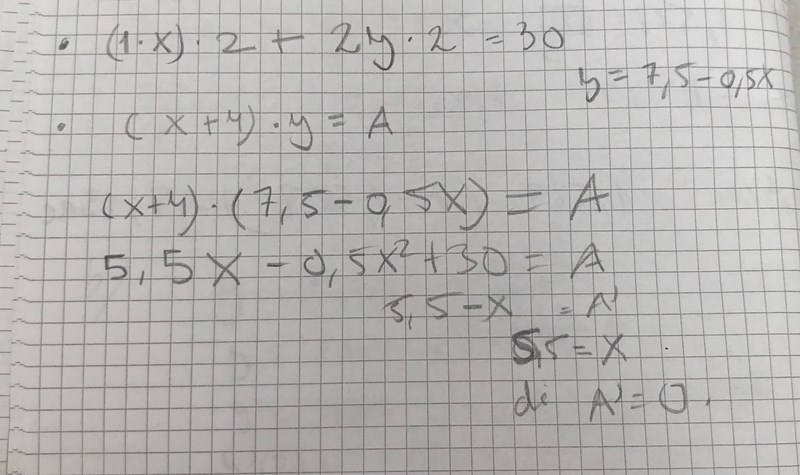 • (1·x)·2 + 2y·2 = 30
y = 7,5 - 0,5x
• (x+4)·y = A
(x+4)·(7,5 - 0,5x) = A
5,5x - 0,5x² + 30 = A
5,5 - x = A'
5,5 = x.
di A' = 0.